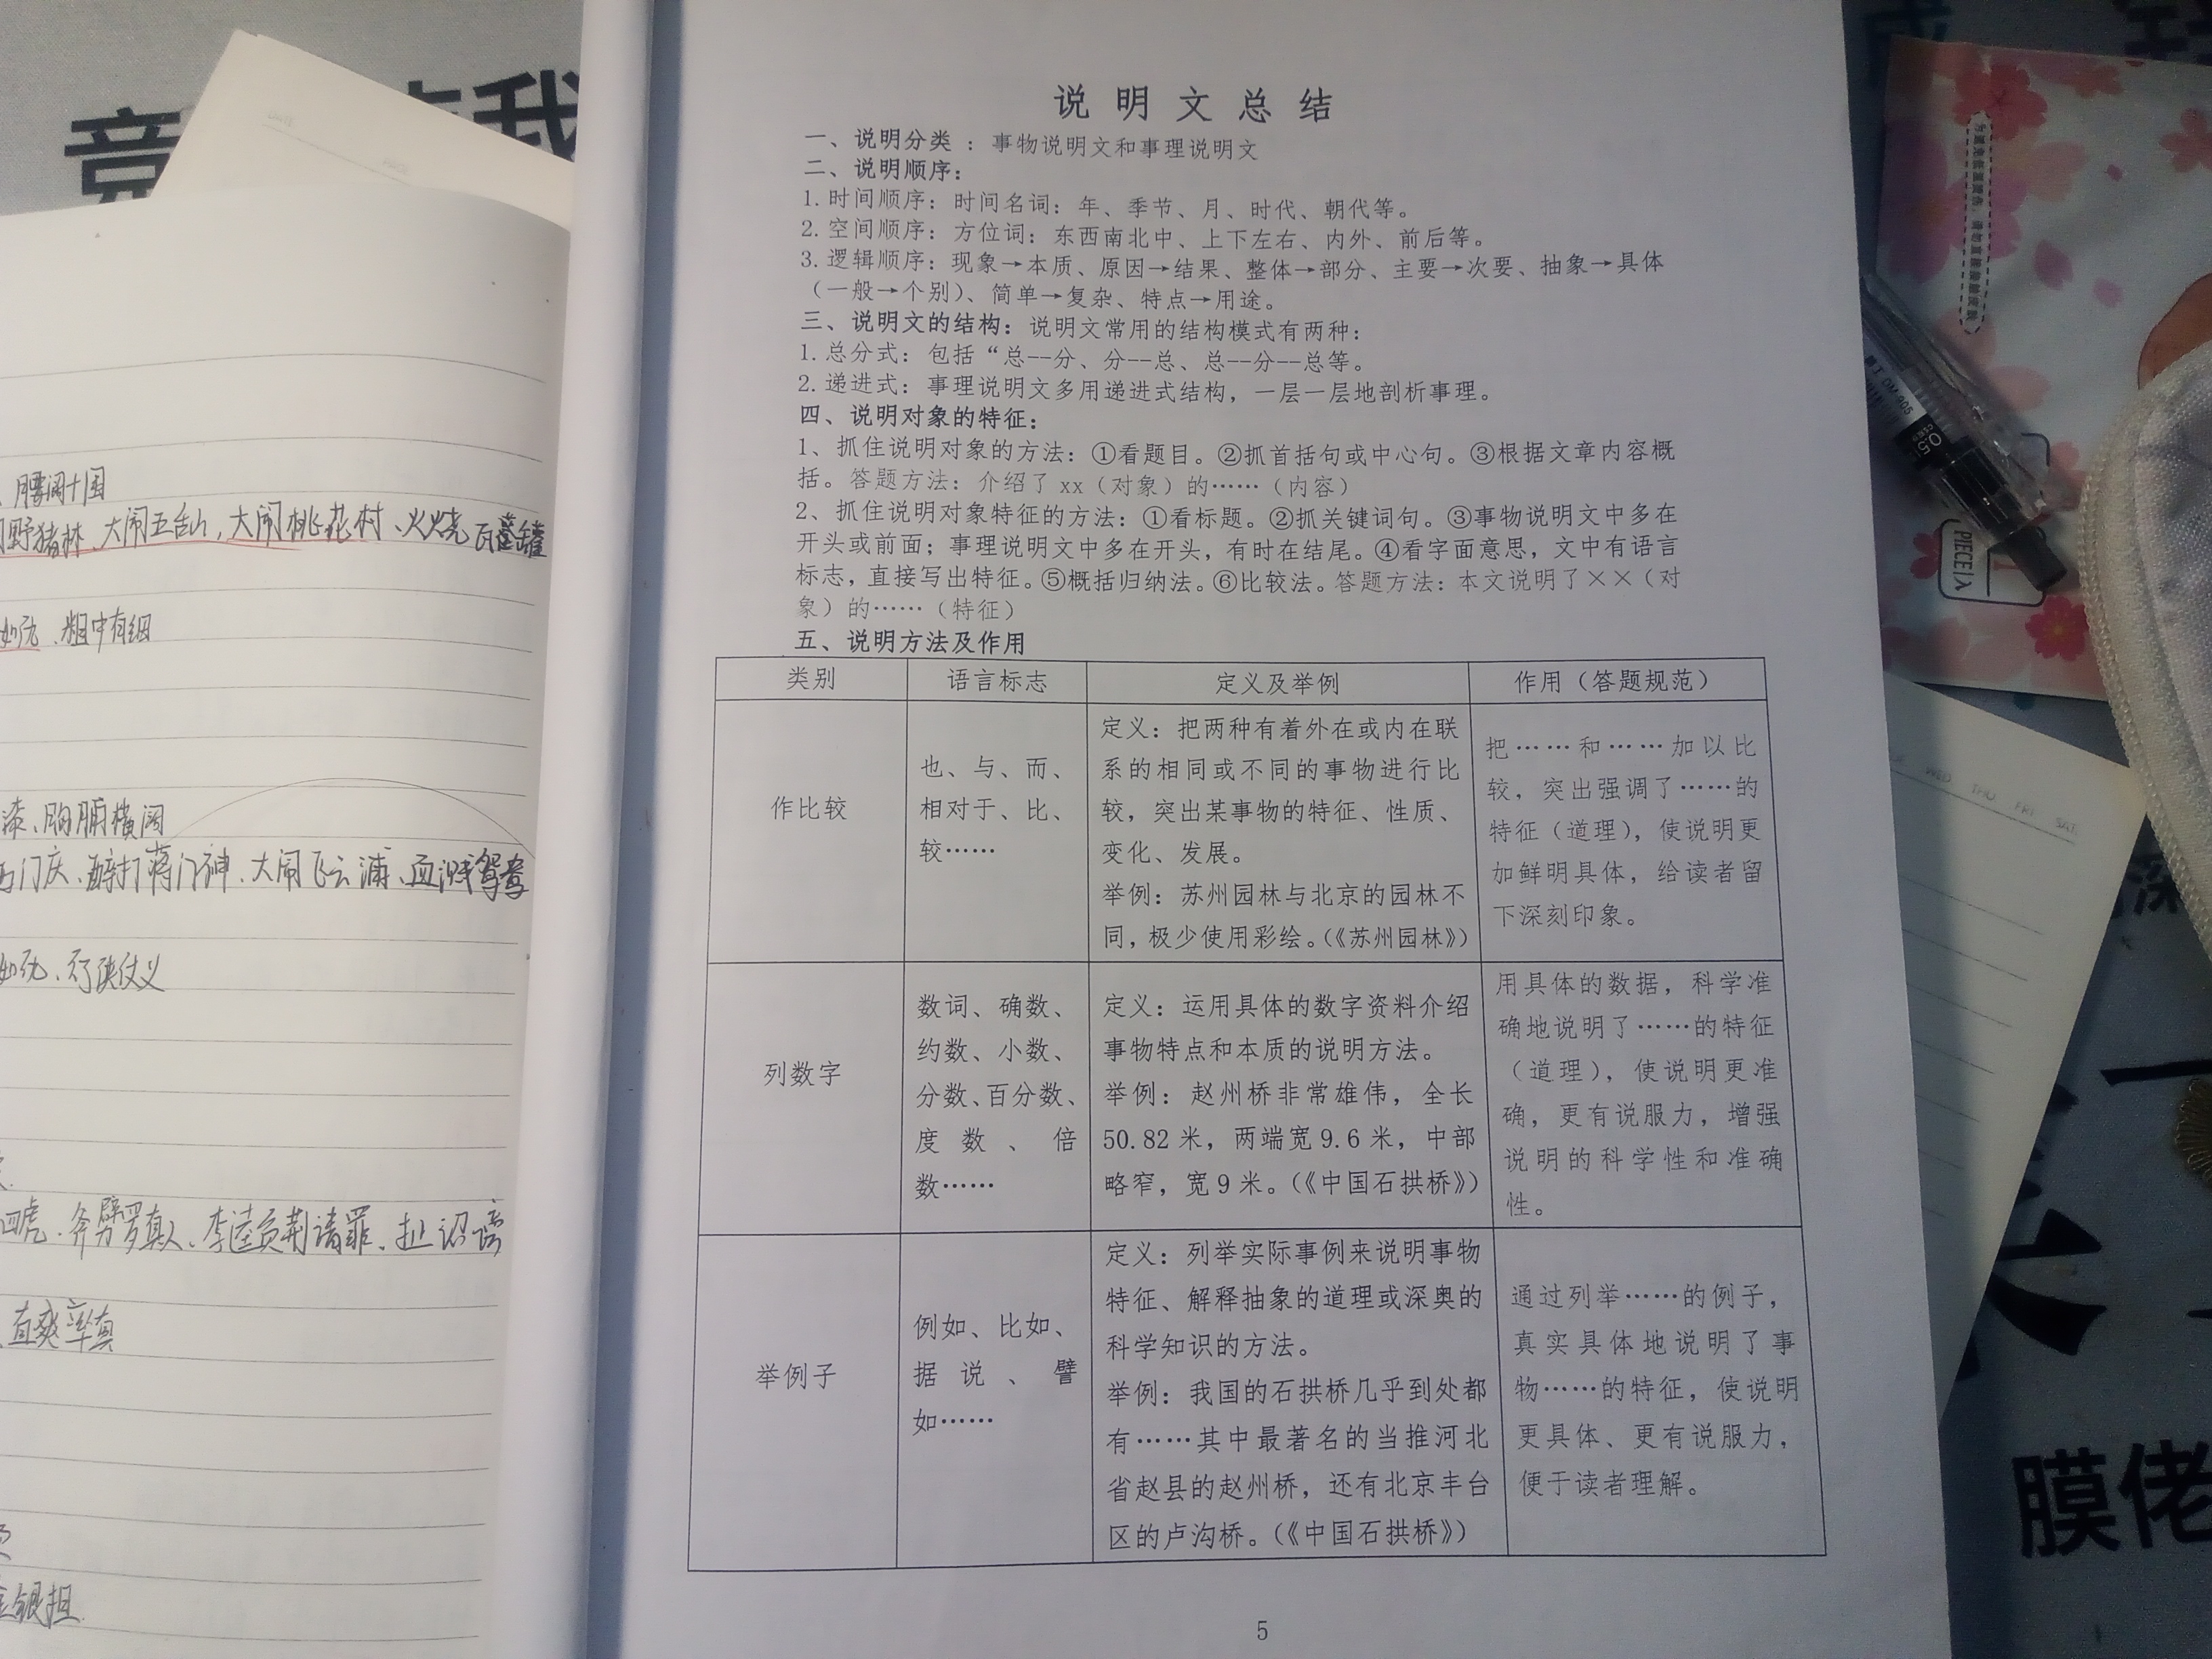 说明文总结
一、说明分类 ：事物说明文和事理说明文
二、说明顺序：
1.时间顺序：时间名词：年、季节、月、时代、朝代等。
2.空间顺序：方位词：东西南北中、上下左右、内外、前后等。
3.逻辑顺序：现象→本质、原因→结果、整体→部分、主要→次要、抽象→具体
（一般→个别）、简单→复杂、特点→用途。
三、说明文的结构：说明文常用的结构模式有两种：
1.总分式：包括“总--分、分--总、总--分--总等。
2.递进式：事理说明文多用递进式结构，一层一层地剖析事理。
四、说明对象的特征：
1、抓住说明对象的方法：①看题目。②抓首括句或中心句。③根据文章内容概
括。答题方法：介绍了 xx（对象）的……（内容）
2、抓住说明对象特征的方法：①看标题。②抓关键词句。③事物说明文中多在
开头或前面；事理说明文中多在开头，有时在结尾。④看字面意思，文中有语言
标志，直接写出特征。⑤概括归纳法。⑥比较法。答题方法：本文说明了××（对
象）的……（特征）
五、说明方法及作用
类别
语言标志
定义及举例
作用（答题规范）
作比较
也、与、而、
相对于、比、
较……
定义：把两种有着外在或内在联
系的相同或不同的事物进行比
较，突出某事物的特征、性质、
变化、发展。
举例：苏州园林与北京的园林不
同，极少使用彩绘。（《苏州园林》）
把……和……加以比
较，突出强调了……的
特征（道理），使说明更
加鲜明具体，给读者留
下深刻印象。
列数字
数词、确数、
约数、小数、
分数、百分数、
度数、倍
数……
定义：运用具体的数字资料介绍
事物特点和本质的说明方法。
举例：赵州桥非常雄伟，全长
50.82 米，两端宽 9.6 米，中部
略窄，宽 9 米。（《中国石拱桥》）
用具体的数据，科学准
确地说明了……的特征
（道理），使说明更准
确，更有说服力，增强
说明的科学性和准确
性。
举例子
例如、比如、
据说、譬
如……
定义：列举实际事例来说明事物
特征、解释抽象的道理或深奥的
科学知识的方法。
举例：我国的石拱桥几乎到处都
有……其中最著名的当推河北
省赵县的赵州桥，还有北京丰台
区的卢沟桥。（《中国石拱桥》）
通过列举……的例子，
真实具体地说明了事
物……的特征，使说明
更具体、更有说服力，
便于读者理解。
5
、腰阔十围
野猪林、大闹五台山，大闹桃花村、火烧瓦
如仇、粗中有细
漆、胸脯横阔
门庆、醉打蒋门神、大闹飞云浦、血溅鸳鸯
如仇、行侠仗义
四虎、斧劈罗真人、李逵负荆请罪、扯诏谤
直爽率真
银担
竞
我
膜佬
深
0.5
PIECE|入
THU FRI SAT